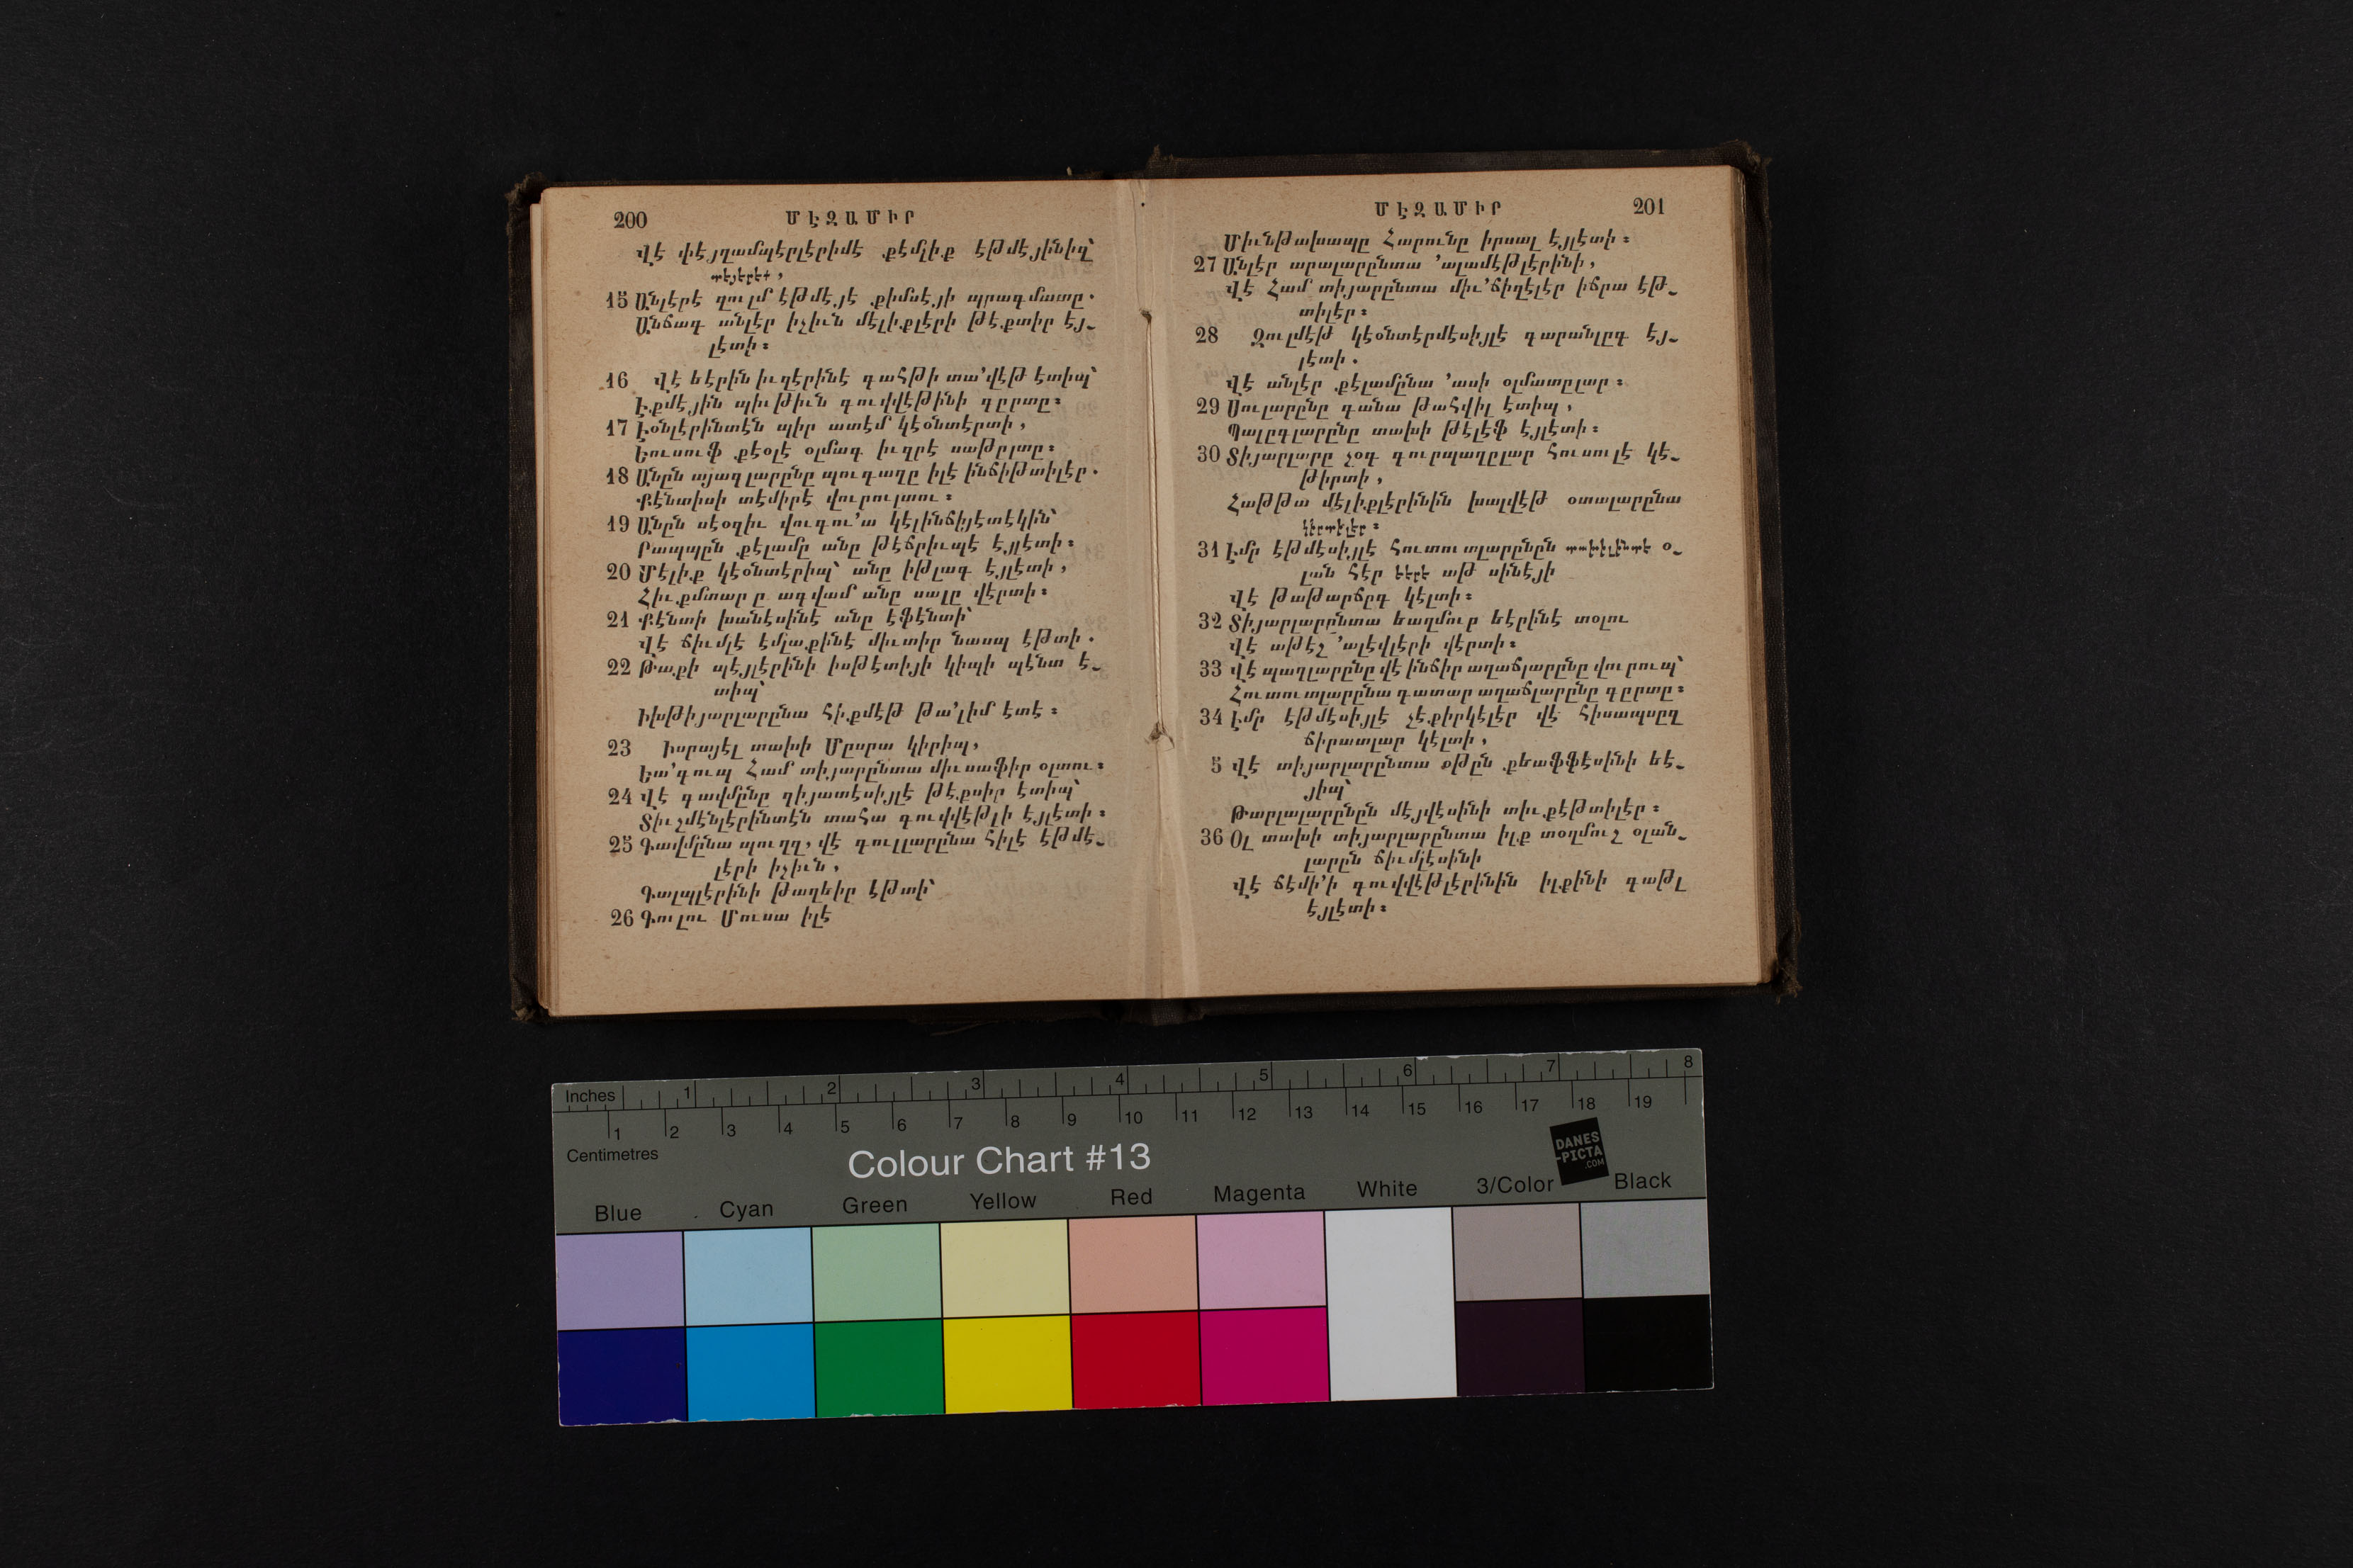 200 ՄԷԶԱՄԻՐ
Վէ փէյղամպէրլէրիմէ քէմլիք էթմէյինիզ՝
տէյէրէք,
15 Անլէրէ զուլմ էթմէյէ քիմսէյի պրագմատը.
Անճագ անլէր իչիւն մէլիքլէրի թէքտիր էյ-
լէտի։
16 Վէ եէրին իւզէրինէ գահթի տա՚վէթ էտիպ՝
Էքմէյին պիւթիւն գուվվէթինի գըրտը։
17 Էօնլէրինտէն պիր ատէմ կէօնտէրտի,
Եուսուֆ քէօլէ օլմագ իւզրէ սաթըլտը։
18 Անըն այագլարընը պուգաղը իլէ ինճիթտիլէր.
Քէնտիսի տէմիրէ վուրուլտու։
19 Անըն սէօզիւ վուգու՚ա կէլինճիյէտէկին՝
Րապպըն քէլամը անը թէճրիւպէ էյլէտի։
20 Մէլիք կէօնտէրիպ՝ անը իթլագ էյլէտի,
Հիւքմտարը ագվամ անը սալը վէրտի։
21 Քէնտի խանէսինէ անը էֆէնտի՝
Վէ ճիւմլէ էմլաքինէ միւտիր նասպ էթտի.
22 Թա քի պէյլէրինի իսթէտիյի կիպի պէնտ է-
տիպ՝
Իխթիյարլարընա հիքմէթ թա՚լիմ էտէ։
23 Իսրայէլ տախի Մըսրա կիրիպ,
Եա՚գուպ Համ տիյարընտա միւսաֆիր օլտու։
24 Վէ գավմընը զիյատէսիյլէ թէքսիր էտիպ՝
Տիւշմէնլէրինտէն տահա գուվվէթլի էյլէտի։
25 Գավմընա պուղզ, վէ գուլլարընա հիլէ էթմէ-
լէրի իչիւն,
Գալպլէրինի թաղեիր էթտի՝
26 Գուլու Մուսա իլէ
ՄԷԶԱՄԻՐ 201
Միւնթախապը Հարունը իրսալ էյլէտի։
27 Անլէր արալարընտա ՚ալամէթլէրինի,
Վէ Համ տիյարընտա միւ՚ճիզէլէր իճրա էթ-
տիլէր։
28 Զուլմէթ կէօնտէրմէսիյլէ գարանլըգ էյ-
լէտի.
Վէ անլէր քէլամընա ՚ասի օլմատըլար։
29 Սուլարընը գանա թահվիլ էտիպ,
Պալըգլարընը տախի թէլէֆ էյլէտի։
30 Տիյարլարը չօգ գուրպաղըլար հուսուլէ կէ-
թիրտի,
Հաթթա մէլիքլէրինին խալվէթ օտալարընա
կիրտիլէր։
31 Էմր էթմէսիյլէ հուտուտլարընըն տախիլինտէ օ-
լան հէր եէրէ աթ սինէյի
Վէ թաթարճըգ կէլտի։
32 Տիյարլարընտա եաղմուր եէրինէ տօլու
Վէ աթէշ ՚ալէվլէրի վէրտի։
33 Վէ պաղլարընը վէ ինճիր աղաճլարընը վուրուպ՝
Հուտուտլարընա գատար աղաճլարընը գըրտը։
34 Էմր էթմէսիյլէ չէքիրկէլէր վէ հիսապսըզ
ճիրատլար կէլտի,
5 Վէ տիյարլարընտա օթըն քեաֆֆէսինի եէ-
յիպ՝
Թարլալարընըն մէյվէսինի տիւքէթտիլէր։
36 Օլ տախի տիյարլարընտա իլք տօղմուշ օլան-
լարըն ճիւմլէսինի
Վէ ճէմի՚ի գուվվէթլէրինին իլքինի գաթլ
էյլէտի։
Inches 1 2 3 4 5 6 7 8
1 2 3 4 5 6 7 8 9 10 11 12 13 14 15 16 17 18 19
Centimetres
Colour Chart #13
DANES
-PICTA
.COM
Blue Cyan Green Yellow Red Magenta White 3/Color Black